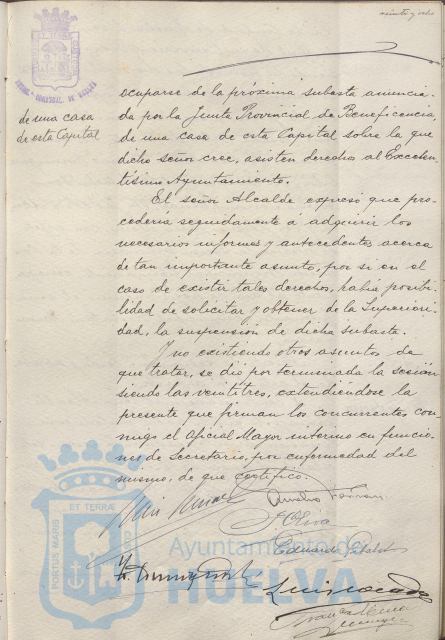 veinte y ocho
de una casa
de esta Capital
ocuparse de la próxima subasta anuncia-
da por la Junta Provincial de Beneficencia,
de una casa de esta Capital sobre la que
dicho señor cree, asisten derecho al Excelen-
tísimo Ayuntamiento.
El señor Alcalde expresó que pro-
cedería seguidamente á adquirir los
necesarios informes y antecedentes acerca
de tan importante asunto, por si en el
caso de existir tales derechos, había posibi-
lidad de solicitar y obtener de la Superiori-
dad, la suspensión de dicha subasta.
Y no existiendo otros asuntos de
que tratar, se dió por terminada la sesión
siendo las veintitres, extendiéndose la
presente que firman los concurrentes con-
migo el Oficial Mayor interino en funcio-
nes de Secretario, por enfermedad del
mismo, de que certifico.
Eduardo
Ayuntamiento de
HUELVA
PORTUS MARIS
ET TERRÆ